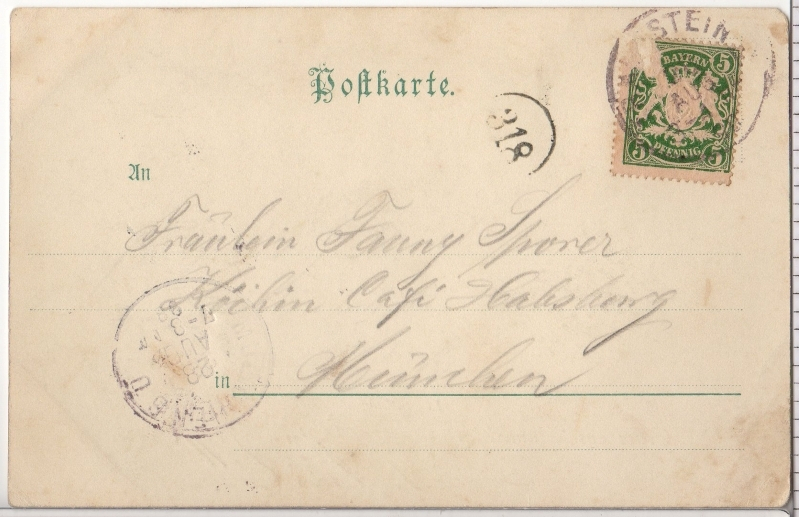 STEIN
5
BAYERN
5 PFENNIG 5
Postkarte.
318
An
Fräulein Fanny Sporer
Köchin Café Habsburg
in München